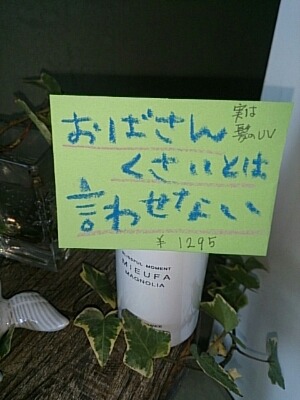 おばさん
くさいとは
言わせない
実は
髪のUV
¥ 1295
MIEUFA
MAGNOLIA